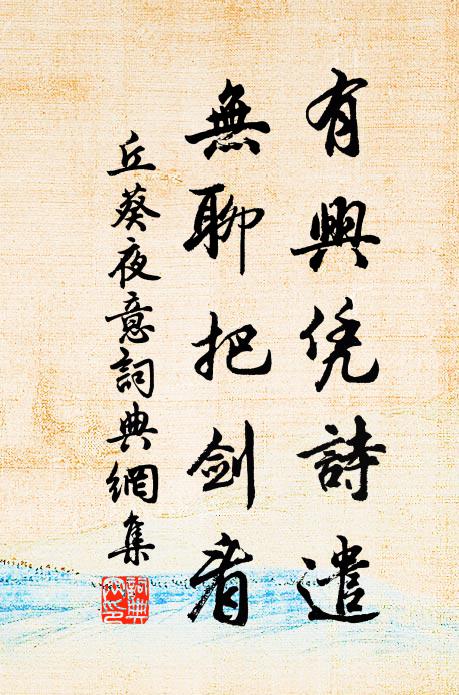 有興凭詩遣
無聊把剑看
丘葵夜意詞典網集